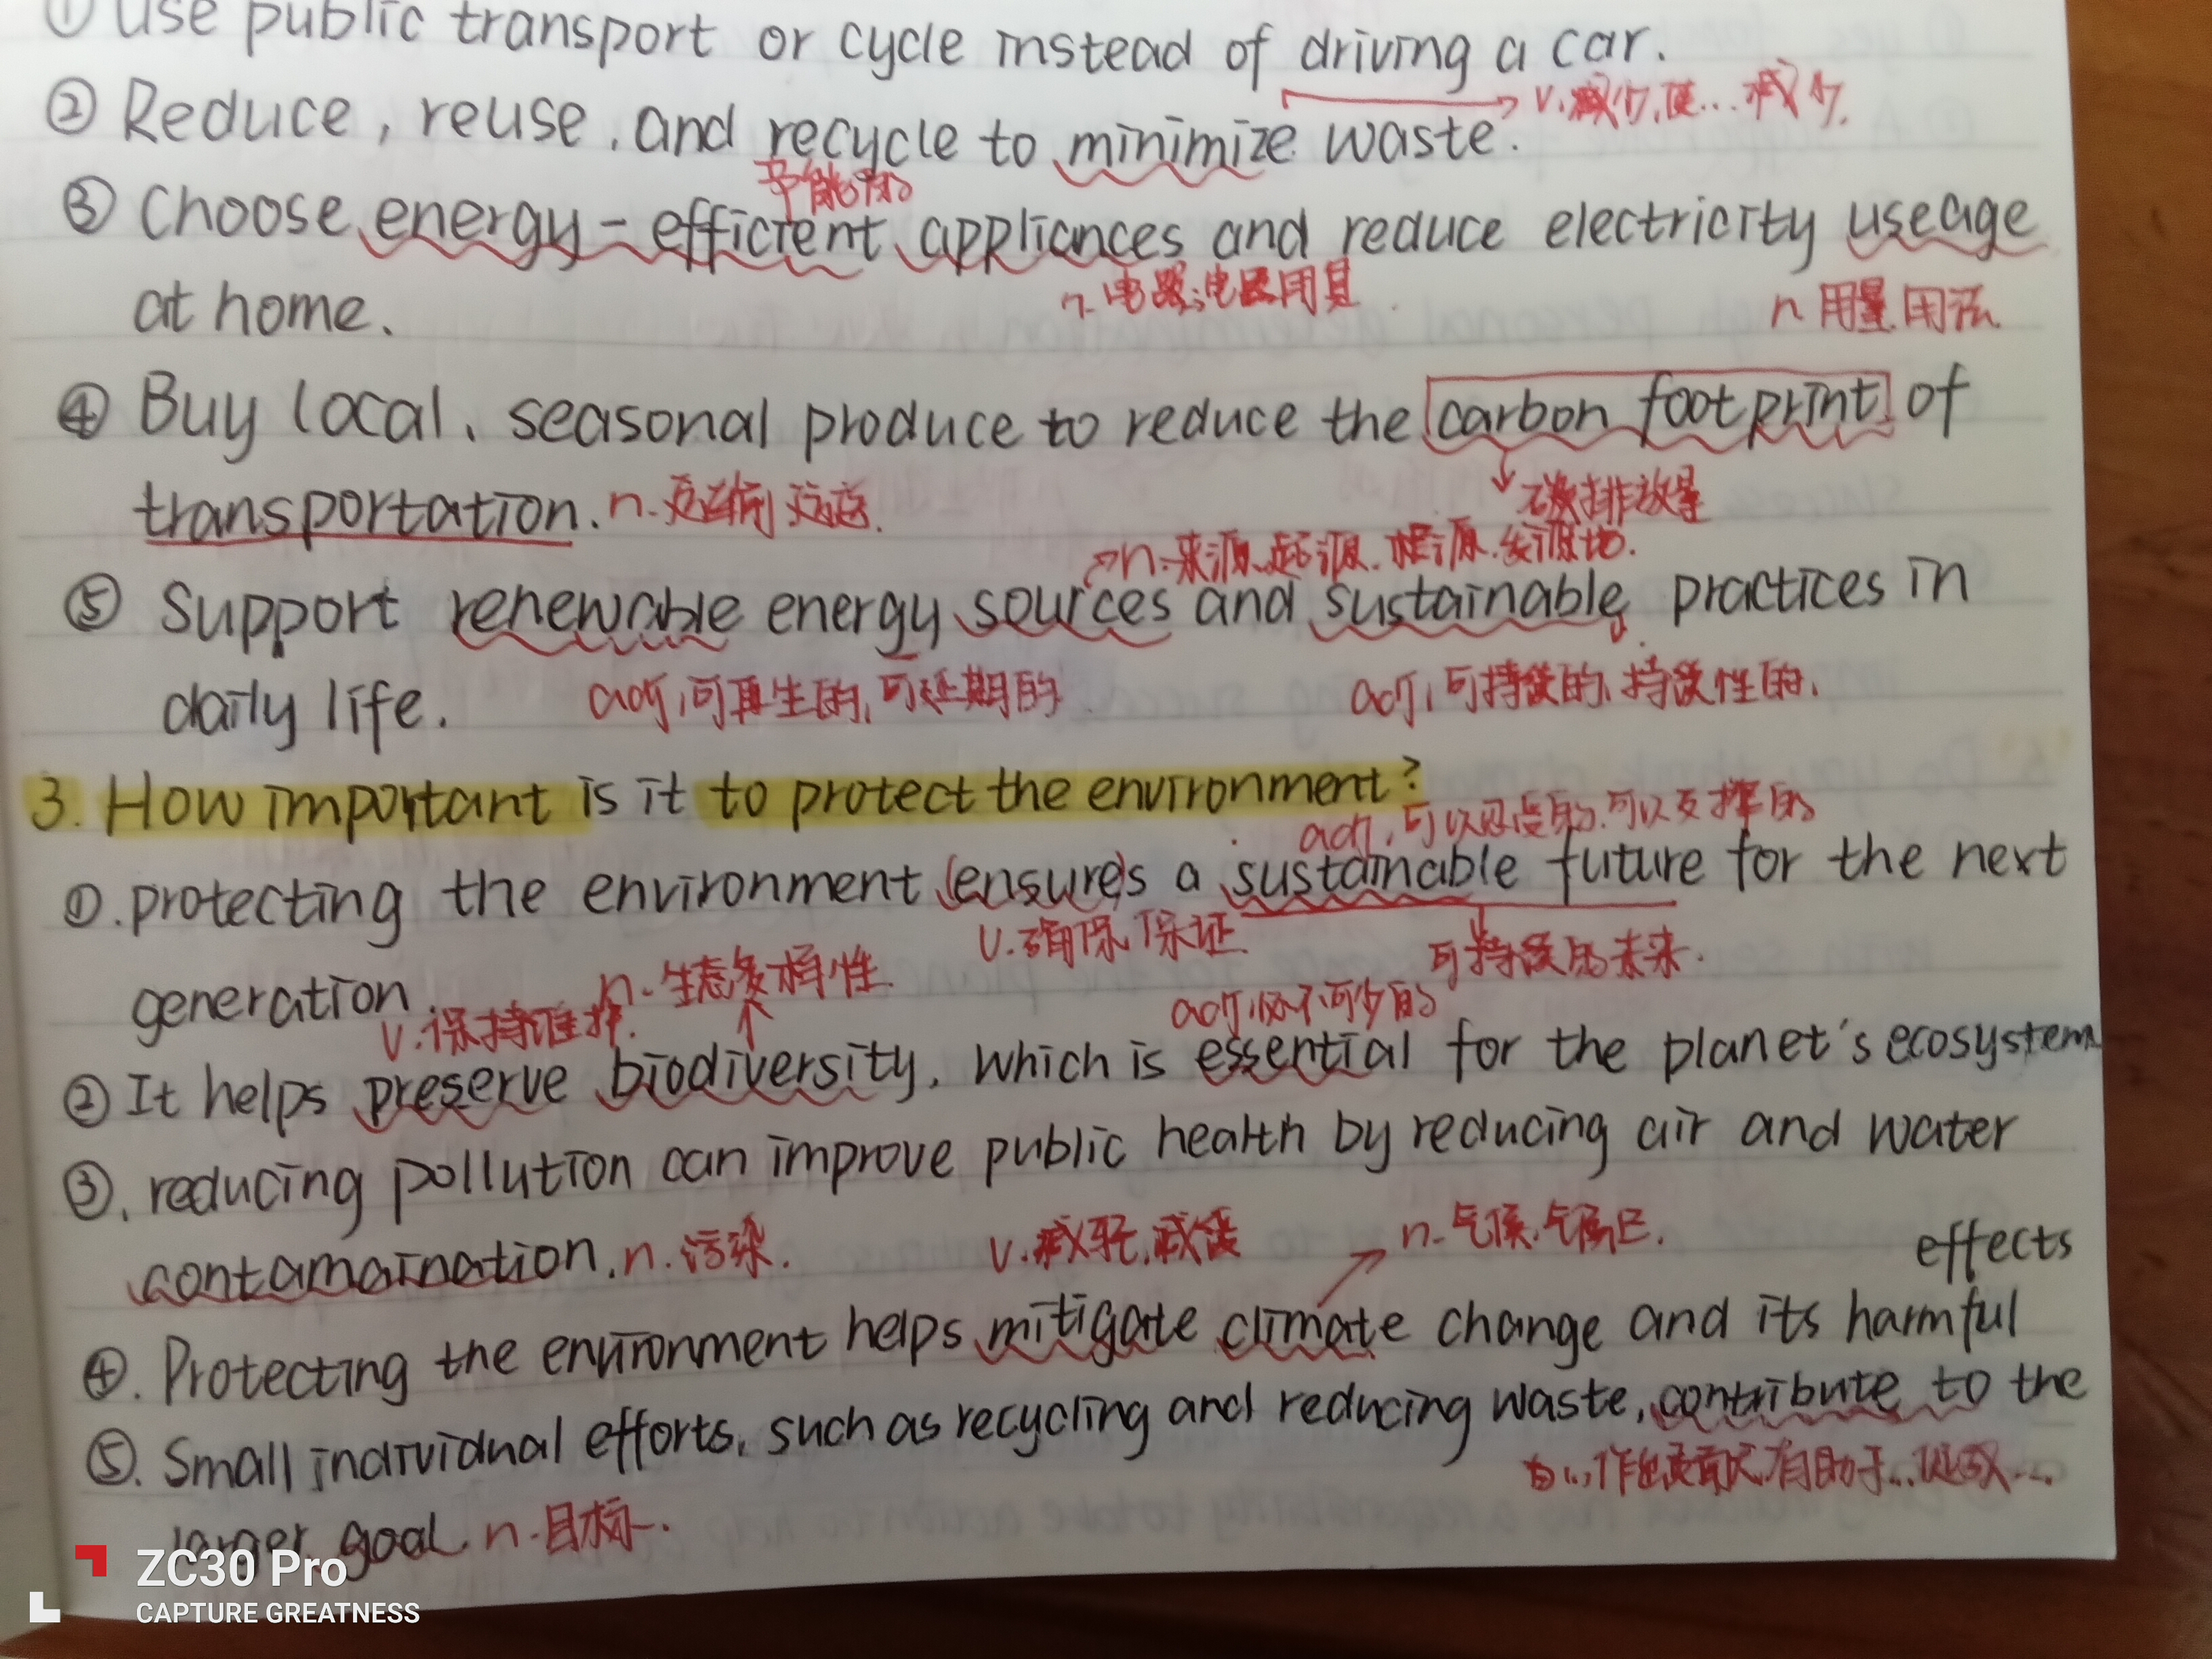 ① Use public transport or cycle instead of driving a car.
v. 减少,使...减少.
② Reduce, reuse, and recycle to minimize waste.
节能的
③ Choose energy-efficient appliances and reduce electricity useage
n. 电器;电器用具
n 用量.用法
at home.
④ Buy local, seasonal produce to reduce the carbon footprint of
transportation. n. 运输
碳排放量
n. 来源.起源.根源.发源地.
⑤ Support renewable energy sources and sustainable practices in
daily life. adj, 可再生的, 可延期的
adj, 可持续的, 持续性的,
3. How important is it to protect the environment?
adj, 可以忍受的.可以支撑的
①. protecting the environment ensures a sustainable future for the next
v. 确保 保证
可持续的未来.
generation.
n. 生态多样性.
adj, 必不可少的
v. 保持维护.
② It helps preserve biodiversity, which is essential for the planet's ecosystem
③. reducing pollution can improve public health by reducing air and water
contamaination. n. 污染.
v. 减轻,减缓
n. 气候,气候区.
effects
④. Protecting the environment helps mitigate climate change and its harmful
⑤. Small individual efforts, such as recycling and reducing waste, contribute to the
为...作出贡献,有助于...促成...
larger goal. n. 目标.
ZC30 Pro
CAPTURE GREATNESS